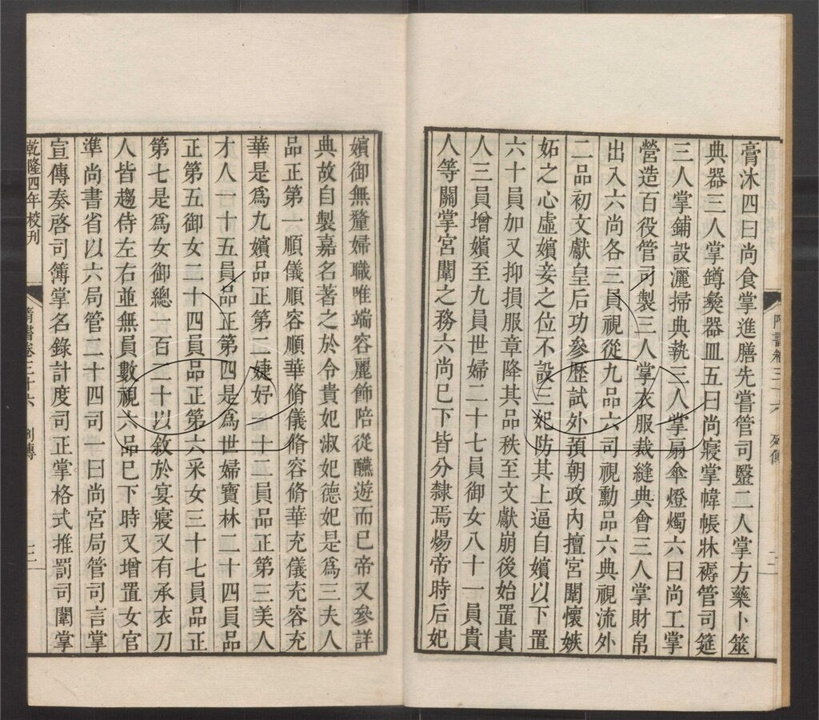 膏沐四曰尚食掌進膳先嘗管司醫二人掌方藥卜筮
典器三人掌鐏彝器皿五曰尚寢掌幃帳牀褥管司筵
三人掌鋪設灑掃典執三人掌扇傘燈燭六曰尚工掌
營造百役管司製三人掌衣服裁縫典會三人掌財帛
出入六尚各三員視從九品六司視勳品六典視流外
二品初文獻皇后功參歷試外預朝政內擅宮闈懷嫉
妬之心虛嬪妾之位不設三妃防其上逼自嬪以下置
六十員加又抑損服章降其品秩至文獻崩後始置貴
人三員增嬪至九員世婦二十七員御女八十一員貴
人等關掌宮闈之務六尚已下皆分隸焉煬帝時后妃
嬪御無釐婦職唯端容麗飾陪從醼遊而已帝又參詳
典故自製嘉名著之於令貴妃淑妃德妃是爲三夫人
品正第一順儀順容順華脩儀脩容脩華充儀充容充
華是爲九嬪品正第二婕妤一十二員品正第三美人
才人一十五員品正第四是爲世婦寶林二十四員品
正第五御女二十四員品正第六采女三十七員品正
第七是爲女御總一百二十以敘於宴寢又有承衣刀
人皆趨侍左右並無員數視六品已下時又增置女官
準尚書省以六局管二十四司一曰尚宮局管司言掌
宣傳奏啓司簿掌名錄計度司正掌格式推罰司闈掌
乾隆四年校刊 隋書卷三十六 列傳 三